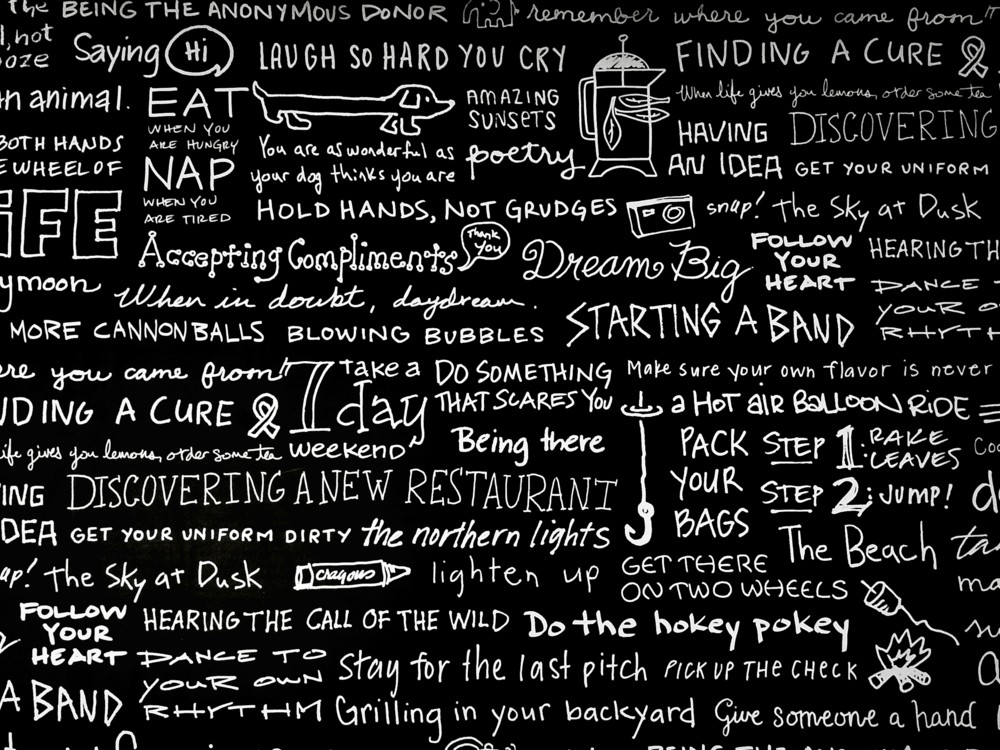 the BEING THE ANONYMOUS DONOR
remember where you came from
not
Saying Hi
LAUGH SO HARD YOU CRY
FINDING A CURE
an animal.
EAT
WHEN YOU
ARE HUNGRY
NAP
WHEN YOU
ARE TIRED
AMAZING
SUNSETS
When life gives you lemons, order some tea
HAVING
AN IDEA
DISCOVERING
BOTH HANDS
WHEEL OF
LiFE
You are as wonderful as
your dog thinks you are
poetry
GET YOUR UNIFORM
HOLD HANDS, NOT GRUDGES
snap! the Sky at Dusk
Accepting Compliments
Thank
You
Dream Big
FOLLOW
YOUR
HEART
HEARING TH
DANCE
YOUR O
RHYTH
ymoon
When in doubt, daydream.
MORE CANNONBALLS
BLOWING BUBBLES
STARTING A BAND
ere you came from
Take a
1 day
weekend
DO SOMETHING
THAT SCARES YOU
Make sure your own flavor is never
NDING A CURE
a HOT AIR BALLOON RIDE
Being there
life gives you lemons, order some tea
PACK
YOUR
BAGS
STEP 1: RAKE
LEAVES
STEP 2: JUMP!
ING
DISCOVERING A NEW RESTAURANT
IDEA
GET YOUR UNIFORM DIRTY
the northern lights
The Beach
ap! the Sky at Dusk
crayons
lighten up
GET THERE
ON TWO WHEELS
FOLLOW
YOUR
HEART
HEARING THE CALL OF THE WILD
Do the hokey pokey
DANCE TO
YOUR OWN
RHYTHM
Stay for the last pitch
PICK UP THE CHECK
A BAND
Grilling in your backyard
Give someone a hand
BEING THE ANONYMOUS DONOR